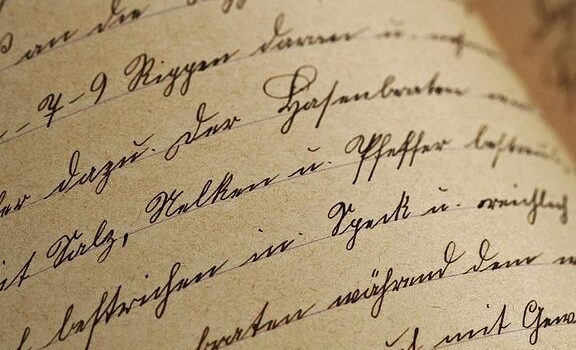 an die
7-9 Rippen daran u.
dazu. Der Hasenbraten
Salz, Nelken u. Pfeffer bestreut
bestrichen in Speck u. reichlich
braten während dem
mit